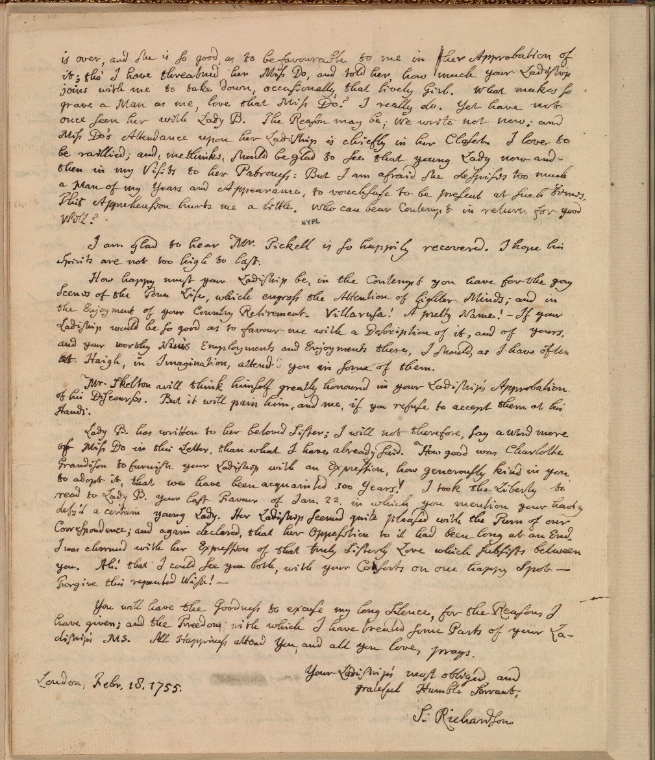 is over, and she is so good as to be favourable to me in her Approbation of
it; tho' I have threatned her Miss Do, and told her, how much your Ladiship
joins with me to take down, occasionally, that lively Girl. What makes so
grave a Man as me, love that Miss Do? I really do. Yet have not
once seen her with Lady B. The Reason may be; we write not now; and
Miss Do's Attendance upon her Ladiship is chiefly in her Closet. I love to
be raillied; and, methinks, should be glad to see that young Lady now and-
then in my Visits to her Patroness: But I am afraid she despises too much
a Man of my Years and Appearance, to vouchsafe to be present at such Times.
This Apprehension hurts me a little. Who can bear Contempt in return for good
Will?
NYPL
I am glad to hear Mr. Pickell is so happily recovered. I hope his
Spirits are not too high to last.
How happy must your Ladiship be, in the Contempt you have for the gay
Scenes of the Town Life, which engross the Attention of lighter Minds; and in
the Enjoyment of your Country Retirement. Villarusa! A pretty Name! - If your
Ladiship would be so good as to favour me with a Description of it, and of yours,
and your worthy Employments and Enjoyments there, I should, as I have often
Haigh, in Imagination, attend you in some of them.
Mr. Skelton will think himself greatly honoured in your Ladiship's Approbation
of his Discourses. But it will pain him, and me, if you refuse to accept them at his
Hands.
Lady B. has written to her beloved Sister; I will not therefore, say a Word more
of Miss Do in this Letter, than what I have already said. How good was Charlotte
Grandison to furnish your Ladiship with an Expression, how generously kind in you
to adopt it, that we have been acquainted 100 Years! I took the Liberty to
read to Lady B. your last Favour of Jan. 22. in which you mention your
a certain young Lady. Her Ladiship seemed quite pleased with the Turn of our
Correspondence; and again declared, that her Opposition to it had been long at an End.
I was charmed with her Expression of that truly Sisterly Love which subsists between
you. Ah! that I could see you both, with your Consorts on one happy Spot —
Forgive this repeated Wish! —
You will have the Goodness to excuse my long Silence, for the Reasons I
have given; and the Freedom with which I have treated some Parts of your La-
diship's MS. All Happiness attend You, and all you love, prays,
Your Ladiship's most obliged and
grateful Humble Servant,
London, Febr. 18. 1755.
S. Richardson